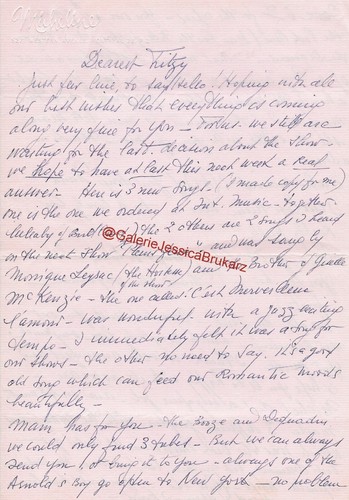 Dearest Fitzy
Just few line, to say Hello! Hoping with all
our best wishes that everything is coming
along very fine for you - For us we still are
waiting for the last decision about the show -
we hope to have at last this next week a real
answer - Here is 3 new songs (I made copy for me)
one is the one we ordered at Int. Music - together
Lullaby of the 2 others are 2 songs I heard
on the new show and was sung by
@GalerieJessicaBrukarz
Monique Leyrac (the Hostess) and the Brother of Giselle
of the show
McKenzie - the one called: C'est Merveilleux
l'amour - was wonderful with a jazz waiting
tempo - I immediately felt it was a song for
our shows - the other no need to say. it's a good
old song which can feed our Romantic moods
beautifully -
Mam has for you - the Booze and
we could only find 3 tubes - But we can always
send you, or bring it to you - always one of the
Arnold's Boy go open to New York - no problem